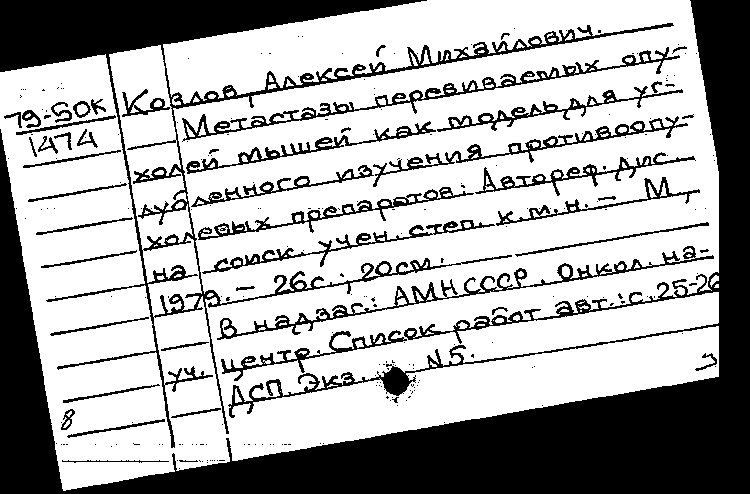 79-50К
1474
Козлов, Алексей Михайлович.
Метастазы перевиваемых опу-
холей мышей как модель для уг-
лубленного изучения противоопу-
холевых препаратов: Автореф. дис.
на соиск. учен. степ. к.м.н. – М.,
1979. – 26с.; 20см.
В надзаг.: АМН СССР. Онкол. на-
уч. центр. Список работ авт.: с. 25-26
ДСП. Экз. N5.
8